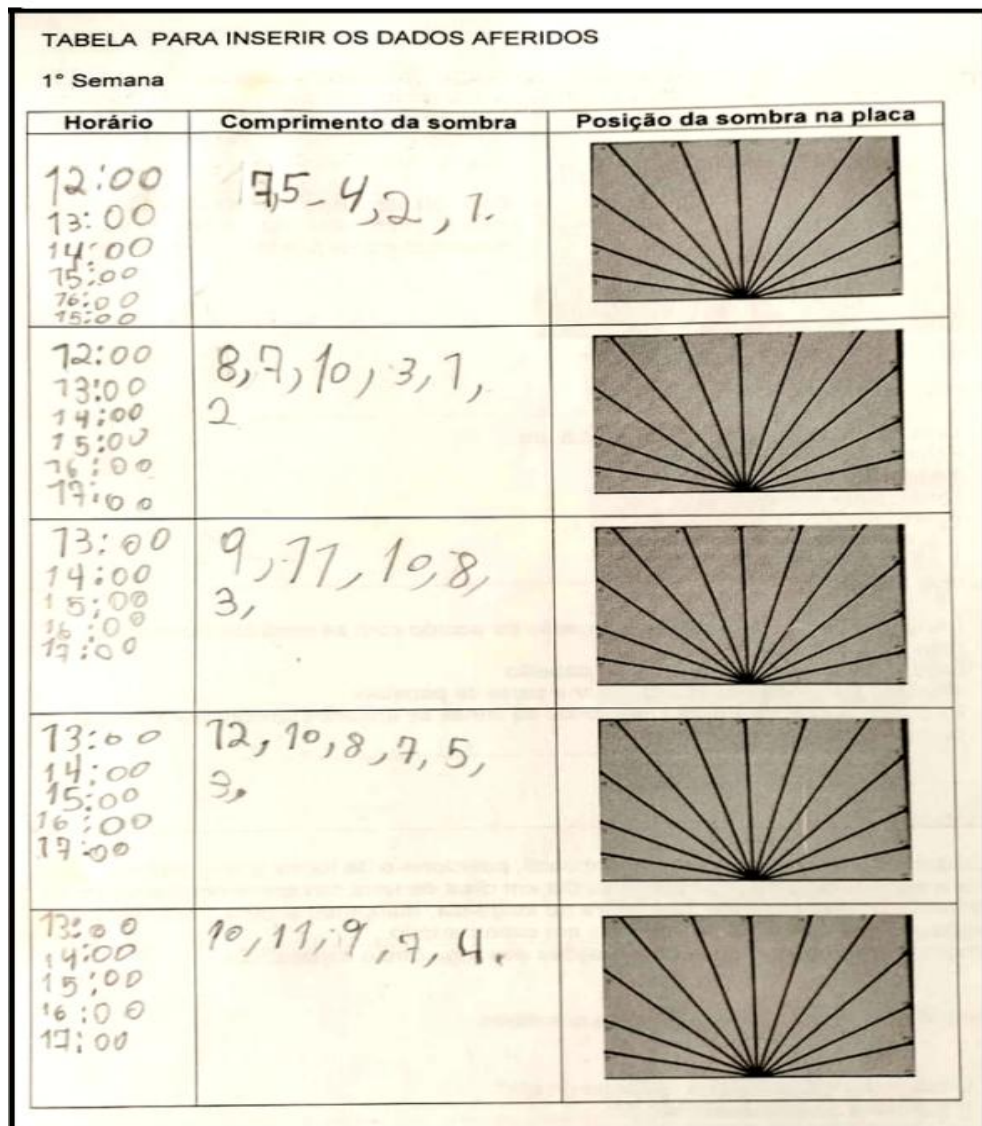 TABELA PARA INSERIR OS DADOS AFERIDOS
1° Semana
Horário Comprimento da sombra Posição da sombra na placa
12:00
13:00
14:00
15:00
16:00
15:00
4,2,1.
12:00
13:00
14:00
15:00
16:00
17:00
8,7,10,3,1,
2
13:00
14:00
15:00
16:00
17:00
9,11,10,8,
3,
13:00
14:00
15:00
16:00
17:00
12,10,8,7,5,
3,
13:00
14:00
15:00
16:00
17:00
10,11,9,7,4.